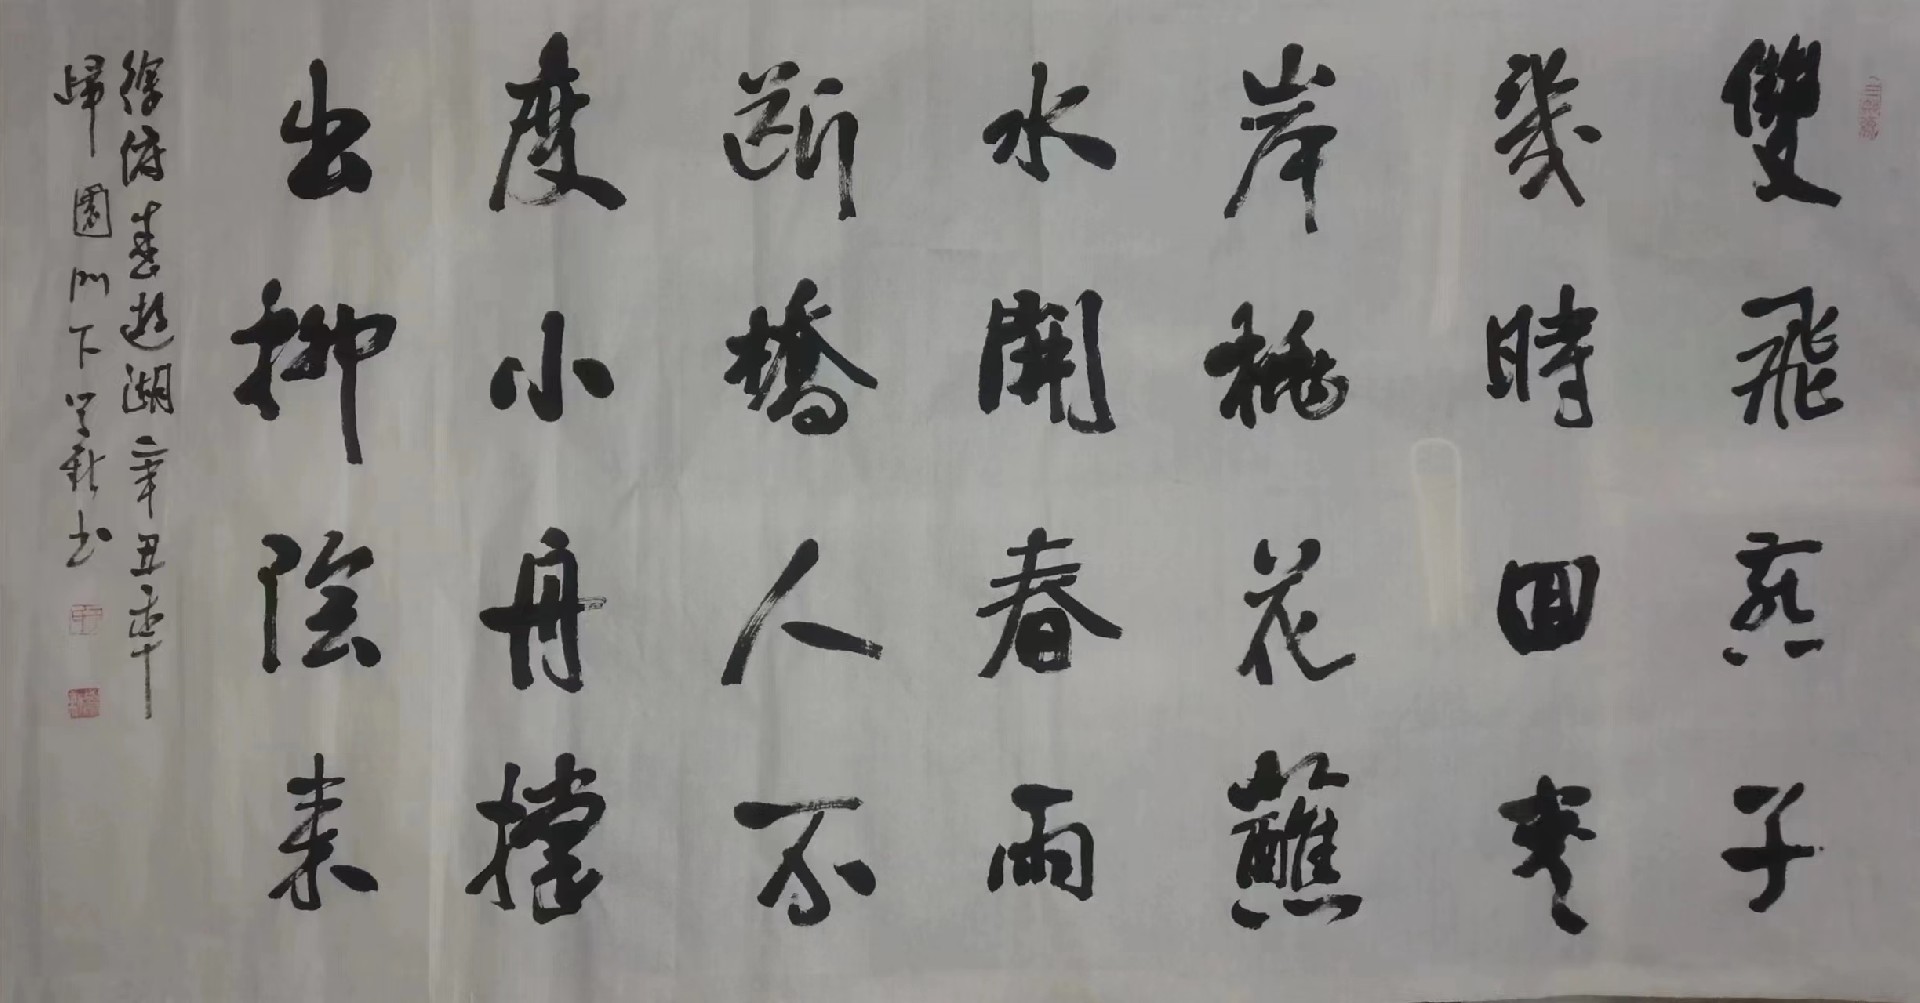 雙飛燕子
幾時回夾
岸桃花蘸
水開春雨
斷橋人不
度小舟撐
出柳陰來
徐俯春遊湖辛丑年
歸園門下學新書